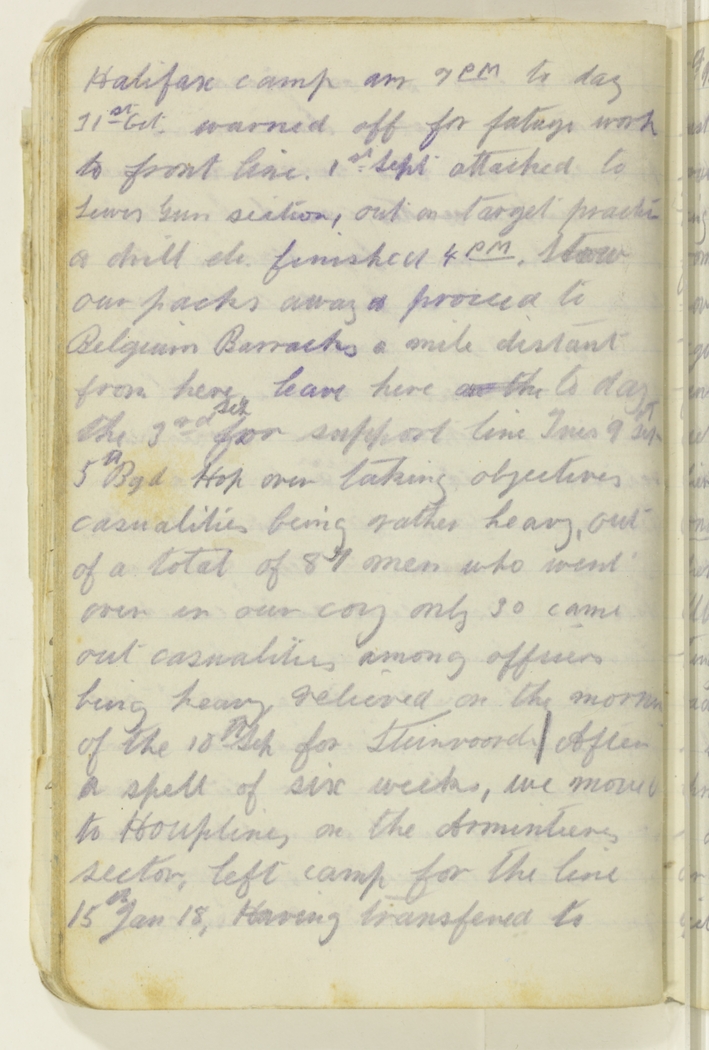 Halifax camp arr 7 PM to day
31st Oct. warned off for fatuge work
to front line. 1st Sept attached to
Lewis Gun section, out on target practi
a drill etc. finished 4 PM. Stow
our packs away & proceed to
Belgium Barracks a mile distant
from here, leave here to day
the 3rd Sep for support line Tues 9 Sept
5th Bgd Hop over taking objectives
casualities being rather heavy, out
of a total of 87 men who went
over in our coy only 30 came
out casualities among officers
being heavy relieved on the mornin
of the 10th Sep for Steinvoord / After
a spell of six weeks, we moved
to Houplines on the Armentieres
sector, left camp for the line
15th Jan 18, Having transfered to